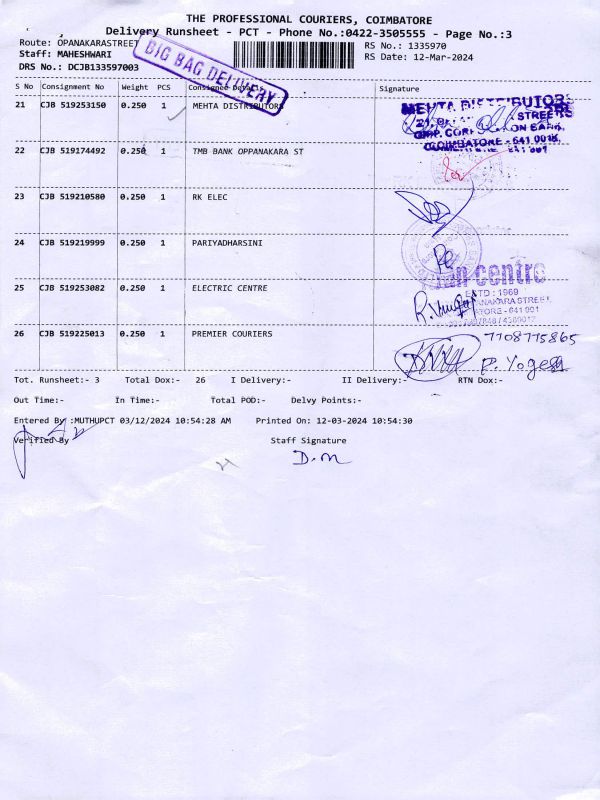 THE PROFESSIONAL COURIERS, COIMBATORE
Delivery Runsheet - PCT - Phone No.:0422-3505555 - Page No.:3
Route: OPANAKARASTREET RS No.: 1335970
Staff: MAHESHWARI RS Date: 12-Mar-2024
DRS No.: DCJB133597003
BIG BAG DELIVERY
S No Consignment No Weight PCS Consignee Details Signature
21 CJB 519253150 0.250 1 MEHTA DISTRIBUTORS
MEHTA DISTRIBUTORS
STREET
COIMBATORE - 641 001
22 CJB 519174492 0.250 1 TMB BANK OPPANAKARA ST
23 CJB 519210580 0.250 1 RK ELEC
24 CJB 519219999 0.250 1 PARIYADHARSINI
25 CJB 519253082 0.250 1 ELECTRIC CENTRE
centre
ESTD : 1969
STREET
641 001
26 CJB 519225013 0.250 1 PREMIER COURIERS
7708775865
P. Yogesh
Tot. Runsheet:- 3 Total Dox:- 26 I Delivery:- II Delivery:- RTN Dox:-
Out Time:- In Time:- Total POD:- Delvy Points:-
Entered By :MUTHUPCT 03/12/2024 10:54:28 AM Printed On: 12-03-2024 10:54:30
Verified By Staff Signature
D.M